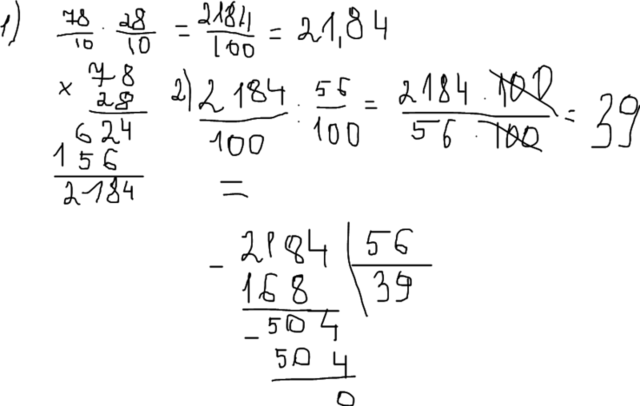 1) 78/10 · 28/10 = 2184/100 = 21,84
× 78
28
624
156
2184
2) 2184/100 : 56/100 = 2184 · 100/56 · 100 = 39
=
- 2184 | 56
168 39
- 504
504
0